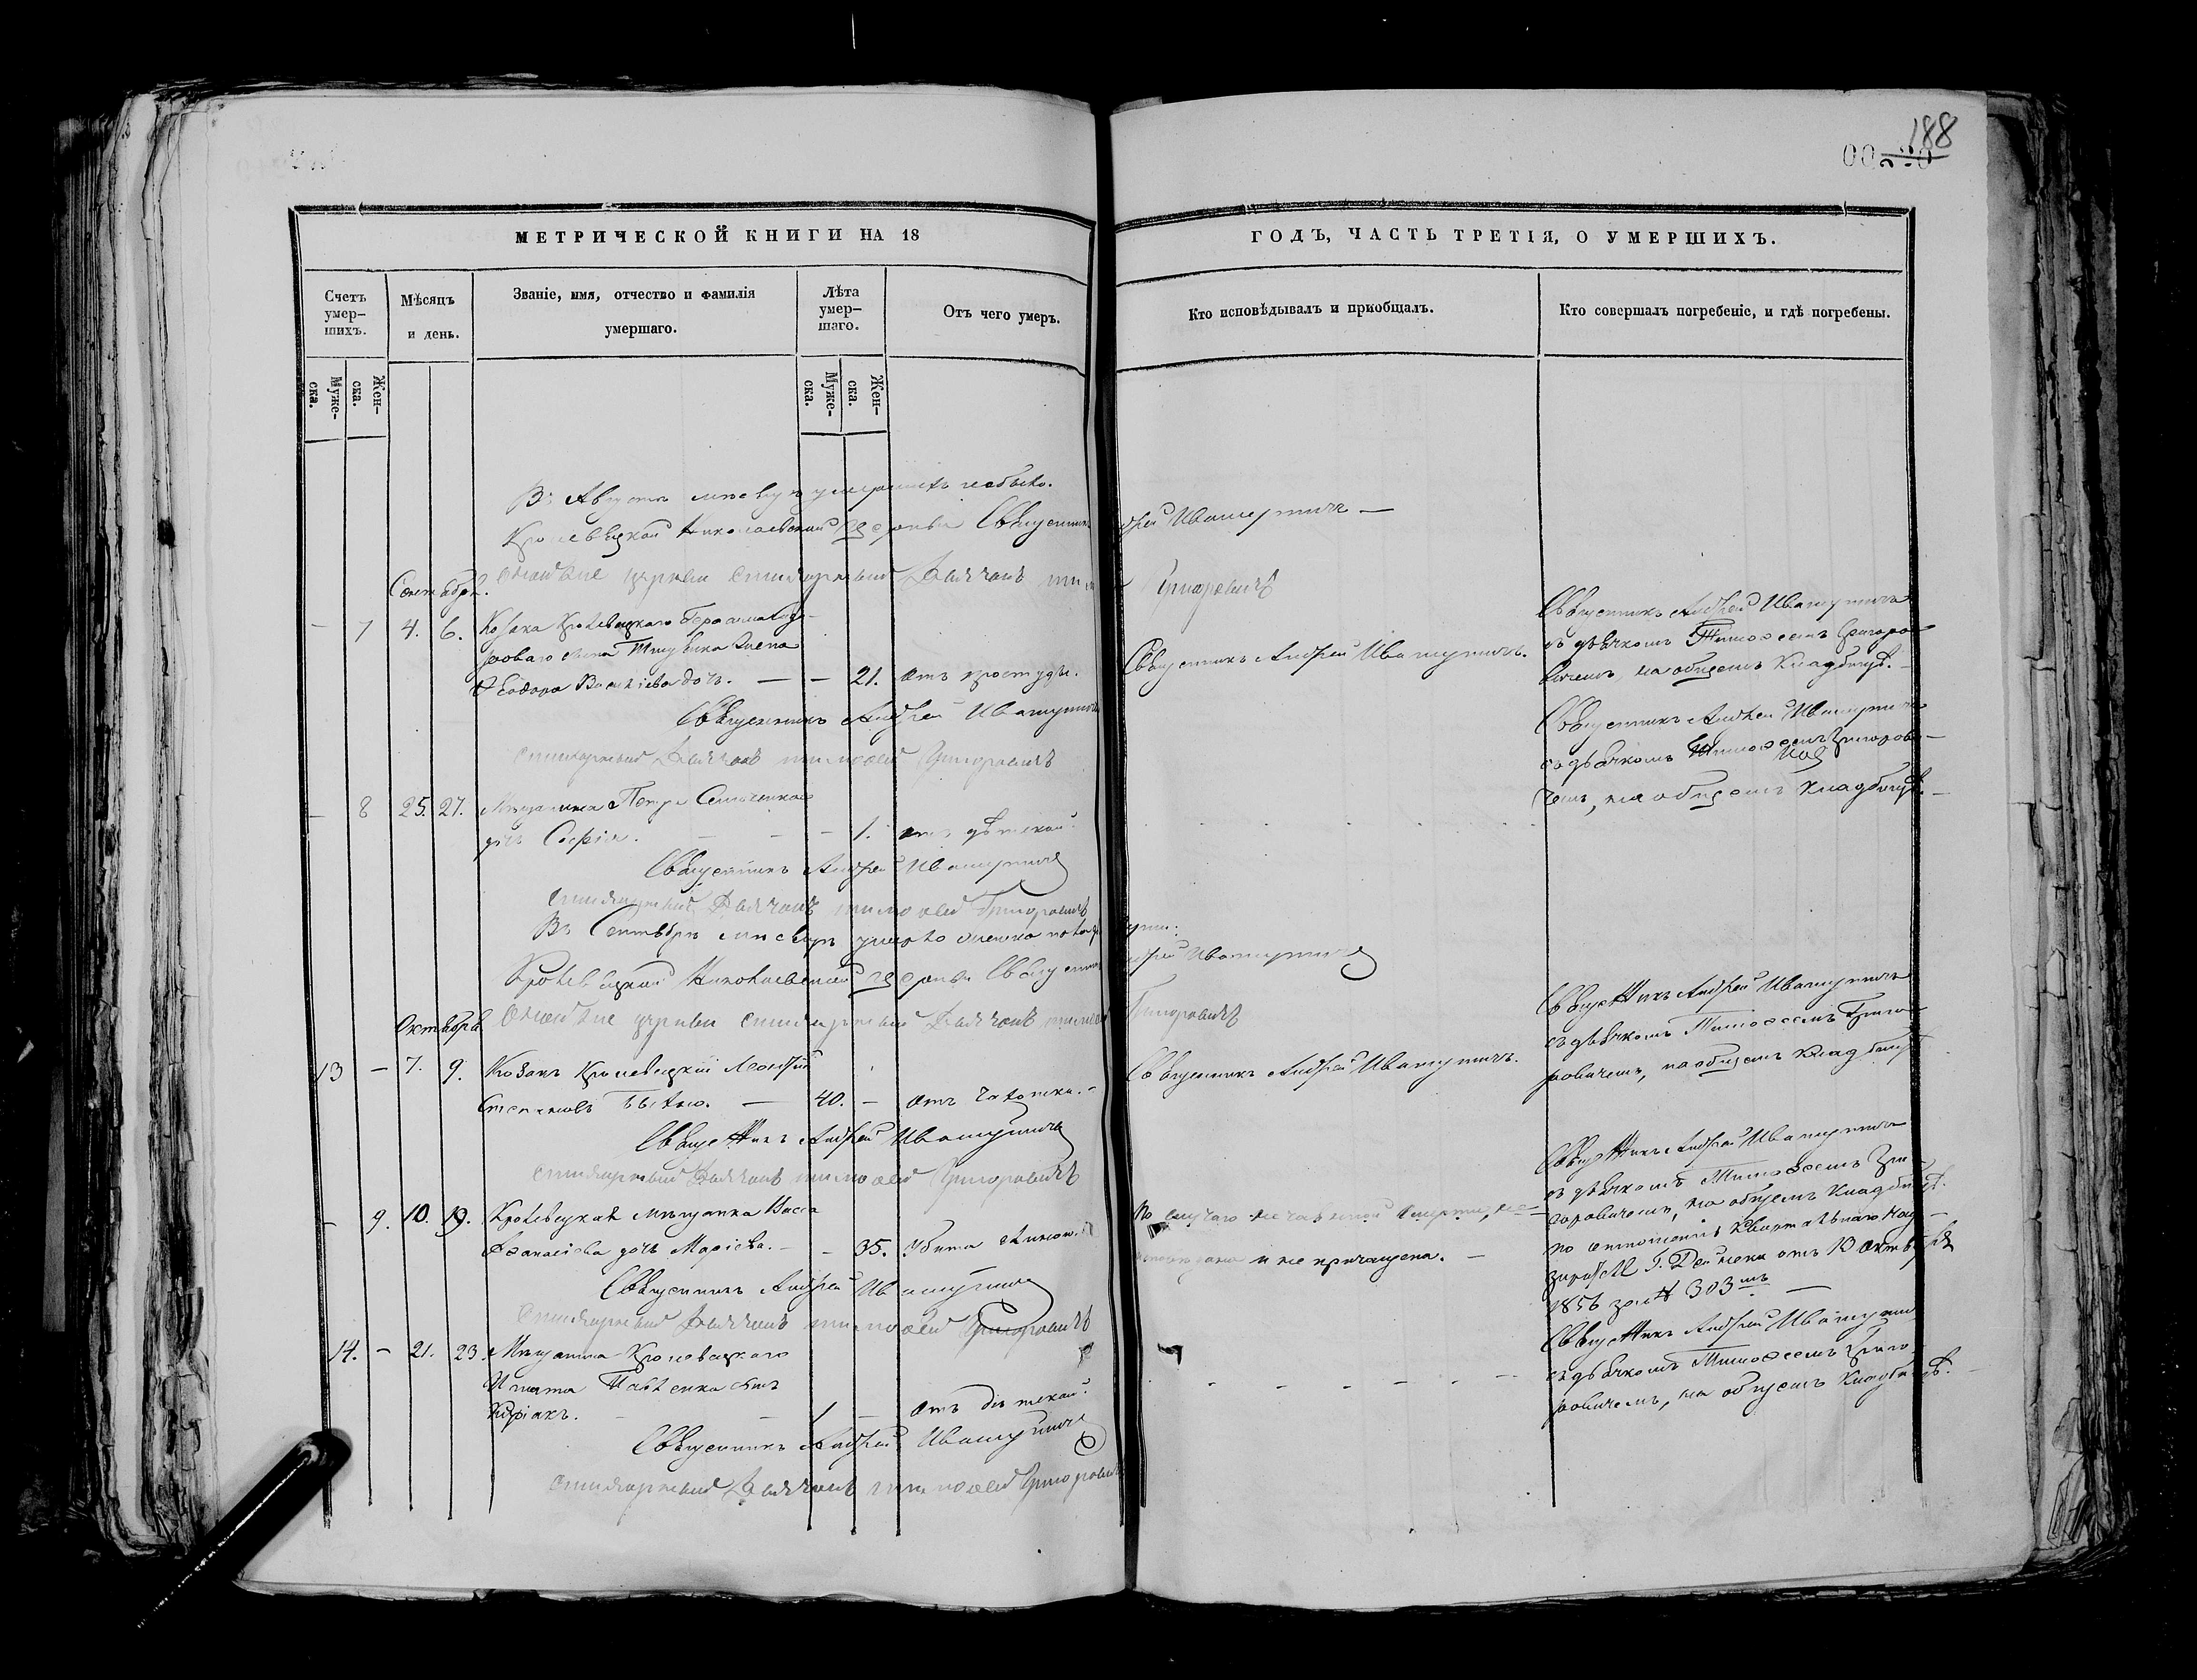 188
МЕТРИЧЕСКОЙ КНИГИ НА 18
ГОДЪ, ЧАСТЬ ТРЕТІЯ, О УМЕРШИХЪ.
Счетъ умер-
шихъ.
Мѣсяцъ
и день.
Званіе, имя, отчество и фамилія
умершаго.
Лѣта
умер-
шаго.
Отъ чего умеръ.
Кто исповѣдывалъ и пріобщалъ.
Кто совершалъ погребеніе, и гдѣ погребены.
Муже-
ска.
Жен-
ска.
Муже-
ска.
Жен-
ска.
Въ Августѣ мѣсяцѣ умершихъ небыло.
Кролевецкой Николаевской церкви Священникъ Андрей Ивашутичъ —
Оной же церкви стихарный Дьячокъ Тимоѳей Григоровичъ
Сентябрь.
– 7 4. 6. Козака Кролевецкаго Герасима
сына жена
Ѳеодора Васильева дочь. — – 21. отъ простуды.
Священникъ Андрей Ивашутичъ.
Священникъ Андрей Ивашутичъ
съ дьячкомъ Тимоѳеемъ Григоро-
вичемъ, на общемъ кладбищѣ. –
Священникъ Андрей Ивашутичъ
стихарный Дьячокъ Тимоѳей Григоровичъ
– 8 25. 27. Мѣщанина Петра
дочь Софія. – – – 1. отъ дѣтской.
Священникъ Андрей Ивашутичъ
съ дьячкомъ Тимоѳеемъ Григорови-
чемъ, на общемъ кладбищѣ. –
Священникъ Андрей Ивашутичъ
стихарный Дьячокъ Тимоѳей Григоровичъ
Въ Сентябрѣ мѣсяцѣ умерло женска пола две души.
Кролевецкой Николаевской церкви Священникъ Андрей Ивашутичъ
Оной же церкви стихарный Дьячокъ Тимоѳей Григоровичъ
Октябрь
13 – 7. 9. Козакъ Кролевецкій Леонтій
Степановъ — 40. – отъ чахотки. –
Священникъ Андрей Ивашутичъ.
Священникъ Андрей Ивашутичъ
съ дьячкомъ Тимоѳеемъ Григо-
ровичемъ, на общемъ кладбищѣ
Священникъ Андрей Ивашутичъ
стихарный Дьячокъ Тимоѳей Григоровичъ
– 9. 10. 19. Кролевецкая мѣщанка Васса
Аѳанасіева дочь – – 35. Убита
По случаю нечаянной смерти, не
исповѣдана и не причащена. –
Священникъ Андрей Ивашутичъ
съ дьячкомъ Тимоѳеемъ Гри-
горовичемъ, на общемъ кладбищѣ.
по отношенію Квартальнаго Над-
зирателя Г. Дейнеки отъ 13 Октября
1856 за № 303мъ —
Священникъ Андрей Ивашутичъ
стихарный Дьячокъ Тимоѳей Григоровичъ
14. – 21. 23. Мѣщанина Кролевецкаго
Игната Павленка сынъ
Киріакъ. – – 1 – отъ дѣтской.
Священникъ Андрей Ивашутичъ
съ дьячкомъ Тимоѳеемъ Григо-
ровичемъ, на общемъ кладбищѣ.
Священникъ Андрей Ивашутичъ
стихарный Дьячокъ Тимоѳей Григоровичъ